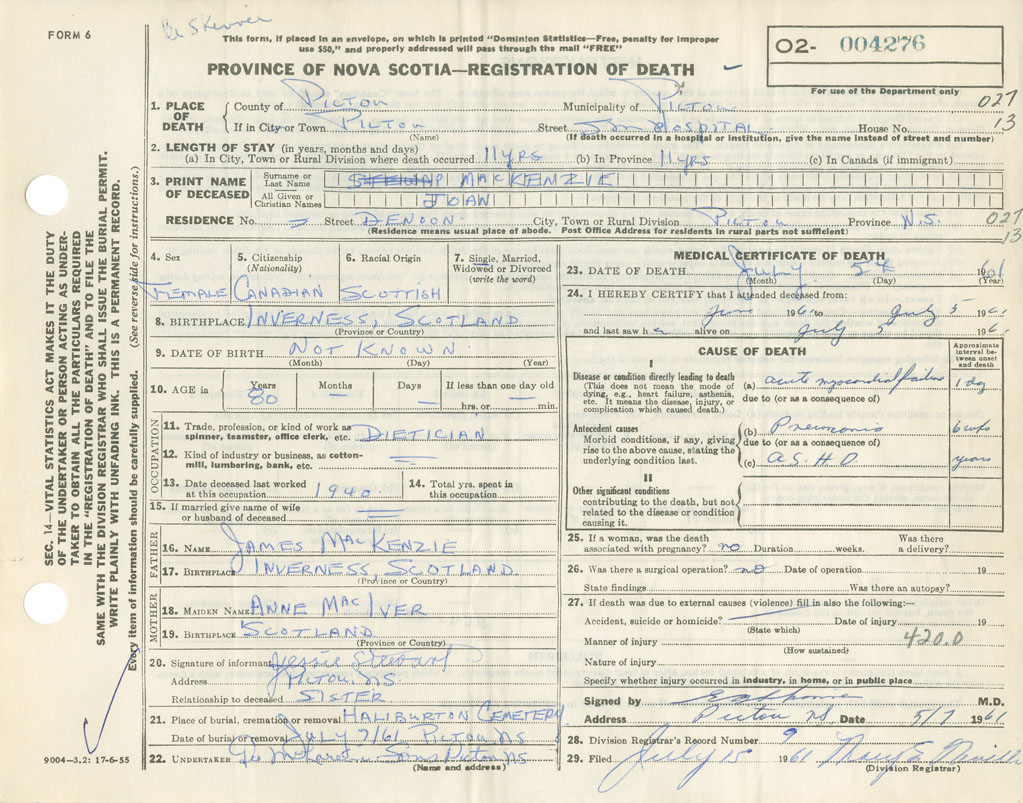 FORM 6
This form, if placed in an envelope, on which is printed "Dominion Statistics—Free, penalty for improper
use $50," and properly addressed will pass through the mail "FREE"
02- 004276
PROVINCE OF NOVA SCOTIA—REGISTRATION OF DEATH
For use of the Department only
027
13
1. PLACE OF DEATH
County of Pictou Municipality of Pictou
If in City or Town Pictou Street Hospital House No.
(Name) (If death occurred in a hospital or institution, give the name instead of street and number)
2. LENGTH OF STAY (in years, months and days)
(a) In City, Town or Rural Division where death occurred 11 yrs (b) In Province 11 yrs (c) In Canada (if immigrant)
3. PRINT NAME OF DECEASED
Surname or Last Name MacKENZIE
All Given or Christian Names JOAN
RESIDENCE No. Street DENOON City, Town or Rural Division PICTOU Province N.S.
027
13
(Residence means usual place of abode. Post Office Address for residents in rural parts not sufficient)
4. Sex FEMALE
5. Citizenship (Nationality) CANADIAN
6. Racial Origin SCOTTISH
7. Single, Married, Widowed or Divorced (write the word)
8. BIRTHPLACE INVERNESS, SCOTLAND
(Province or Country)
9. DATE OF BIRTH NOT KNOWN
(Month) (Day) (Year)
10. AGE in Years 80 Months — Days — If less than one day old
hrs. or min.
OCCUPATION
11. Trade, profession, or kind of work as spinner, teamster, office clerk, etc. DIETICIAN
12. Kind of industry or business, as cotton-mill, lumbering, bank, etc.
13. Date deceased last worked at this occupation 1940
14. Total yrs. spent in this occupation
15. If married give name of wife or husband of deceased
FATHER
16. NAME JAMES MacKENZIE
17. BIRTHPLACE INVERNESS, SCOTLAND
(Province or Country)
MOTHER
18. MAIDEN NAME ANNE MacIVER
19. BIRTHPLACE SCOTLAND
(Province or Country)
20. Signature of informant Jessie Stewart
Address PICTOU, NS
Relationship to deceased SISTER
21. Place of burial, cremation or removal HALIBURTON CEMETERY
Date of burial or removal JULY 7/61, PICTOU NS
22. UNDERTAKER Sons Pictou NS
(Name and address)
MEDICAL CERTIFICATE OF DEATH
23. DATE OF DEATH July 5th 1961
(Month) (Day) (Year)
24. I HEREBY CERTIFY that I attended deceased from:
June 1961 to July 5 1961
and last saw her alive on July 5 1961
CAUSE OF DEATH
Approximate interval between onset and death
I
Disease or condition directly leading to death
(This does not mean the mode of dying, e.g., heart failure, asthenia, etc. It means the disease, injury, or complication which caused death.)
(a) acute myocardial failure 1 day
due to (or as a consequence of)
Antecedent causes
Morbid conditions, if any, giving rise to the above cause, stating the underlying condition last.
(b) Pneumonia 6 wks
due to (or as a consequence of)
(c) A.S.H.D. years
II
Other significant conditions
contributing to the death, but not related to the disease or condition causing it.
25. If a woman, was the death associated with pregnancy? no Duration weeks. Was there a delivery?
26. Was there a surgical operation? no Date of operation 19
State findings Was there an autopsy?
27. If death was due to external causes (violence) fill in also the following:—
Accident, suicide or homicide? Date of injury 19
(State which)
Manner of injury 420.0
(How sustained)
Nature of injury
Specify whether injury occurred in industry, in home, or in public place
Signed by M.D.
Address Pictou NS Date 5/7 1961
28. Division Registrar's Record Number 9
29. Filed July 15 1961 Mary E.
(Division Registrar)
SEC. 14—VITAL STATISTICS ACT MAKES IT THE DUTY
OF THE UNDERTAKER OR PERSON ACTING AS UNDER-
TAKER TO OBTAIN ALL THE PARTICULARS REQUIRED
IN THE "REGISTRATION OF DEATH" AND TO FILE THE
SAME WITH THE DIVISION REGISTRAR WHO SHALL ISSUE THE BURIAL PERMIT.
WRITE PLAINLY WITH UNFADING INK. THIS IS A PERMANENT RECORD.
Every item of information should be carefully supplied. (See reverse side for instructions.)
9004-3.2: 17-6-55